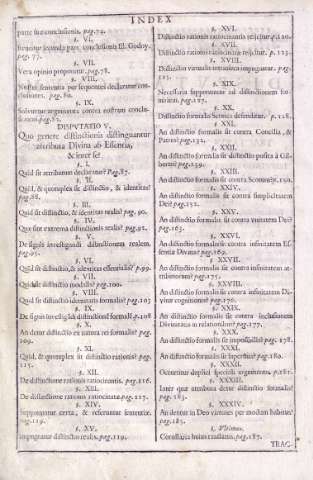 INDEX
parte sue conclusionis. pag.74.
§. VI.
pag.77.
§. VII.
Vera opinio proponitur. pag.78.
§. VIII.
Nostra sententia per sequentes declaratur conclusiones. pag.80.
§. IX.
Solvuntur argumenta contra nostram conclusionem. pag.82.
DISPUTATIO V.
Quo genere distinctionis distinguantur
attributa Divina ab Essentia,
& inter se?
§. I.
Quid sit attributum declaratur? Pag.87.
§. II.
Quid, & quotuplex sit distinctio, & identitas?
pag.88.
§. III.
Quid sit distinctio, & identitas realis? pag. 90.
§. IV.
Quæ sint extrema distinctionis realis? pag.92.
§. V.
De signis investigandi distinctionem realem.
pag.95.
§. VI.
Quid sit distinctio, & identitas essentialis? p.99.
§. VII.
Quid sit distinctio modalis? pag.100.
§. VIII.
Quid sit distinctio identitatis formalis? pag.103
§. IX.
De signis investigandi distinctionem formalem? p.108
§. X.
An detur distinctio ex natura rei formalis? pag.
109.
§. XI.
Quid, & quotuplex sit distinctio rationis? pag.
115.
§. XII.
De distinctione rationis ratiocinantis. pag.116.
§. XIII.
De distinctione rationis ratiocinatæ. pag.117.
§. XIV.
Supponuntur certa, & referuntur sententiæ.
pag.119.
§. XV.
Impugnatur distinctio realis. pag.119.
§. XVI.
Distinctio rationis ratiocinantis reijcitur. p.120.
§. XVII.
Distinctio rationis ratiocinatæ reijcitur. p. 123.
§. XVIII.
Distinctio virtualis intrinseca impugnatur. pag.
125.
§. XIX.
Necessaria supponuntur ad distinctionem formalem. pag.127.
§. XX.
Distinctio formalis Scotica defenditur. p.128.
§. XXI.
An distinctio formalis sit contra Concilia, &
Patres? pag.132.
§. XXII.
pag.139.
§. XXIII.
An distinctio formalis sit contra
§. XXIV.
An distinctio formalis sit contra simplicitatem
Dei? pag.152.
§. XXV.
An distinctio formalis sit contra unitatem Dei?
pag.163.
§. XXVI.
An distinctio formalis sit contra infinitatem Essentiæ Divinæ? pag.169.
§. XXVII.
An distinctio formalis sit contra infinitatem attributorum? pag.175.
§. XXVIII.
An distinctio formalis sit contra infinitatem Divinæ cognitionis? pag.176.
§. XXIX.
An distinctio formalis sit contra inclusionem
Divinitatis in relationibus? pag.177.
§. XXX.
An distinctio formalis sit impossibilis? pag. 178.
§. XXXI.
An distinctio formalis sit superflua? pag.180.
§. XXXII.
Occurritur duplici speciali argumento. p.181.
§. XXXIII.
Inter quæ attributa detur distinctio formalis?
pag.183.
§. XXXIV.
An dentur in Deo virtutes per modum habitus?
pag.185.
§. Ultimus.
Corollaria huius tractatus. pag.187.
TRAC-